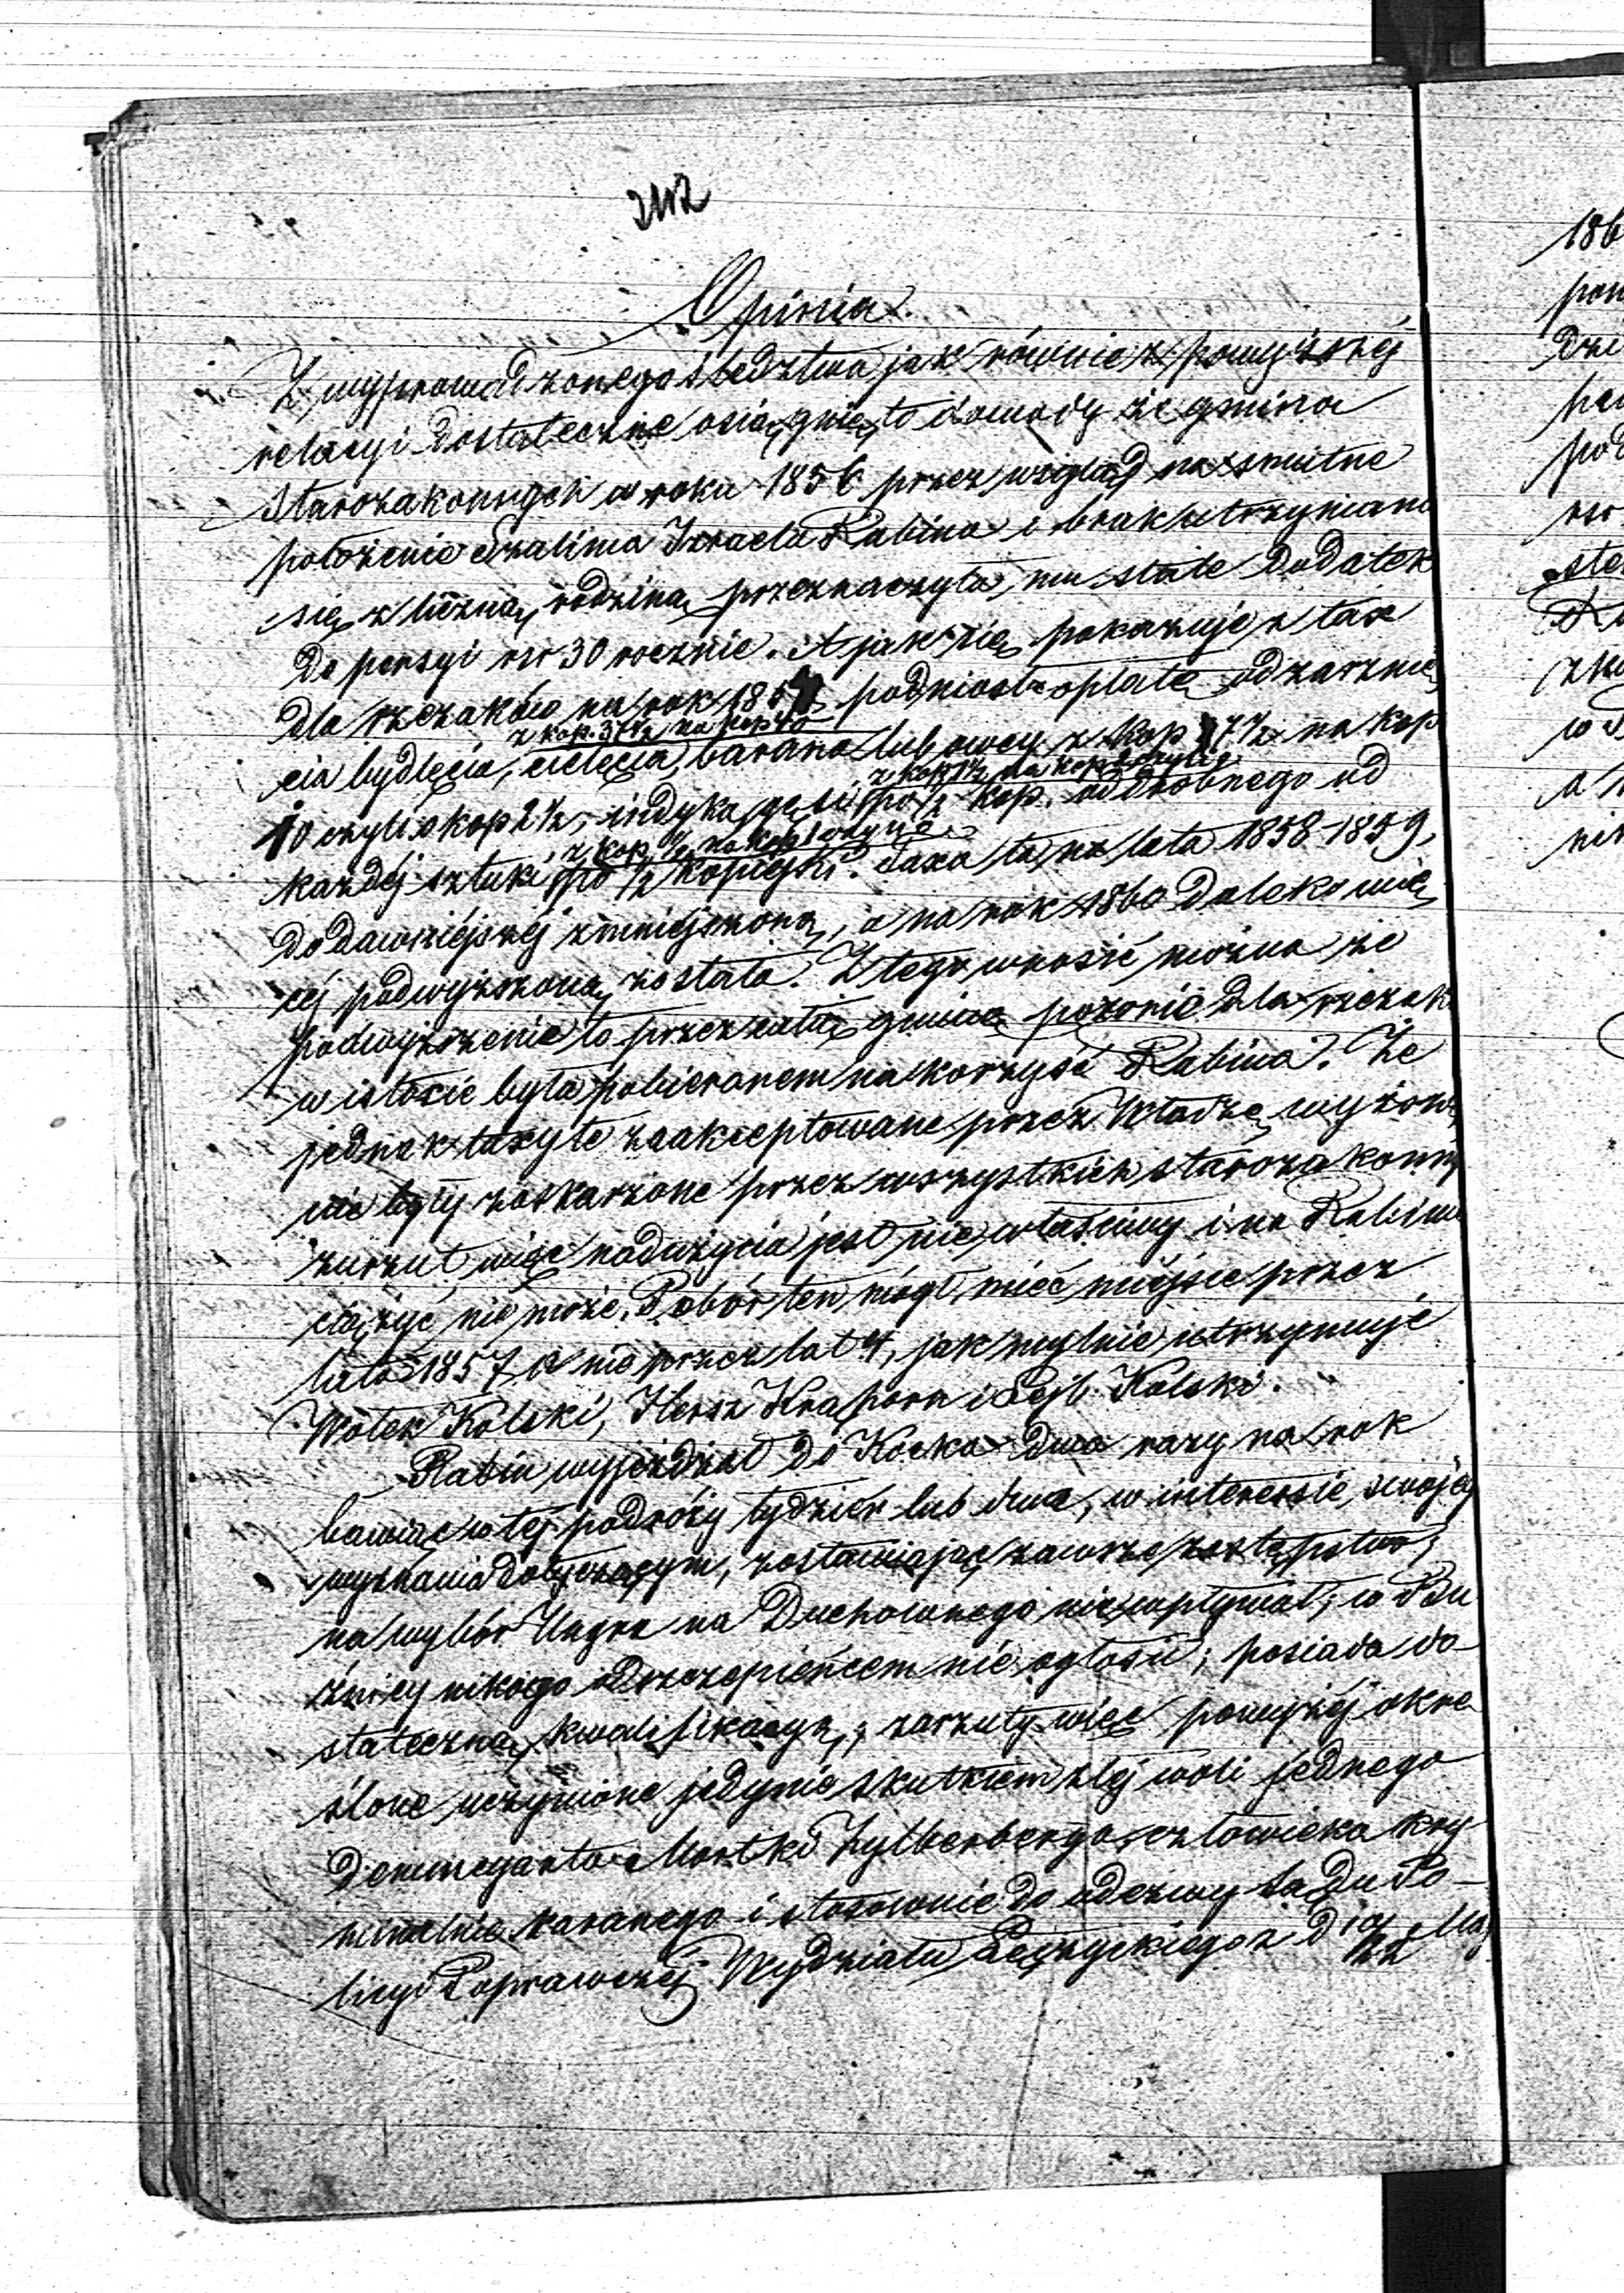 2112
Opinia.
Z wyprowadzonego śledztwa jak również powyższej
relacyi dostatecznie osiągnięto dowody że gmina
Starozakonnych w roku 1856 przez wzgląd na smutne
położenie Szalima Izraela Rabina i brak utrzymania
się z liczną rodziną przeznaczyła mu stałe dodatek
do pensyi rsr 30 rocznie. A jak się pokazuje z tax
dla rzezaków na rok 1857 podniosła opłatę od zarznię
z kop. 37½ na kop 40
cia bydlęcia, cielęcia, barana lub owcy z kop 7½ na kop
z kop 1½ na kop 2 czyli
10 czyli o kop 2½, indyka, gęsi po ½ kop. od drobnego od
z kop ½ na kop 1 czyli o
każdej sztuki po ½ kopiejki. Taxa ta na lata 1858-1859,
do dawniejszej zmniejszoną, a na rok 1860 daleko wię
cej podwyższoną została. Z tego wnosić można że
podwyższenie to przez całą gminę pozornie dla rzezak
w istocie była pobieranem na korzyść Rabina. Że
jednak taxy te zaakceptowane przez Władzę wyższą
nie były zaskarżone przez wszystkich starozakonny
zarzut więc nadużycia jest nie właściwy i na Rabinie
ciążyć nie może. Pobór ten mógł mieć miejsce przez
lato 1857 a nie przez lat 4, jak mylnie utrzymuje
Wolek Kolski, Hersz Kraporn i Lejb Kolski.
Rabin wyjeżdżał do Kocka dwa razy na rok
bawiąc w tej podróży tydzień lub dwa, w interessie swojego
wyznania dotyczącym, zostawiając zawsze zastępstwo;
na wybór Ungra na Duchownego nie wpływał; w Bu
żnicy nikogo odszczepieńcem nie ogłosił; posiada do
stateczną kwalifikacyą; zarzuty więc powyżej okre
ślone uczynione jedynie skutkiem złej woli jednego
Denuncyanta Mortki Zylberberga człowieka kry
minalnie karanego i stosownie do odezwy Sądu Po-
licyi Poprawczej Wydziału Łęczyckiego z d Maj
186
pod